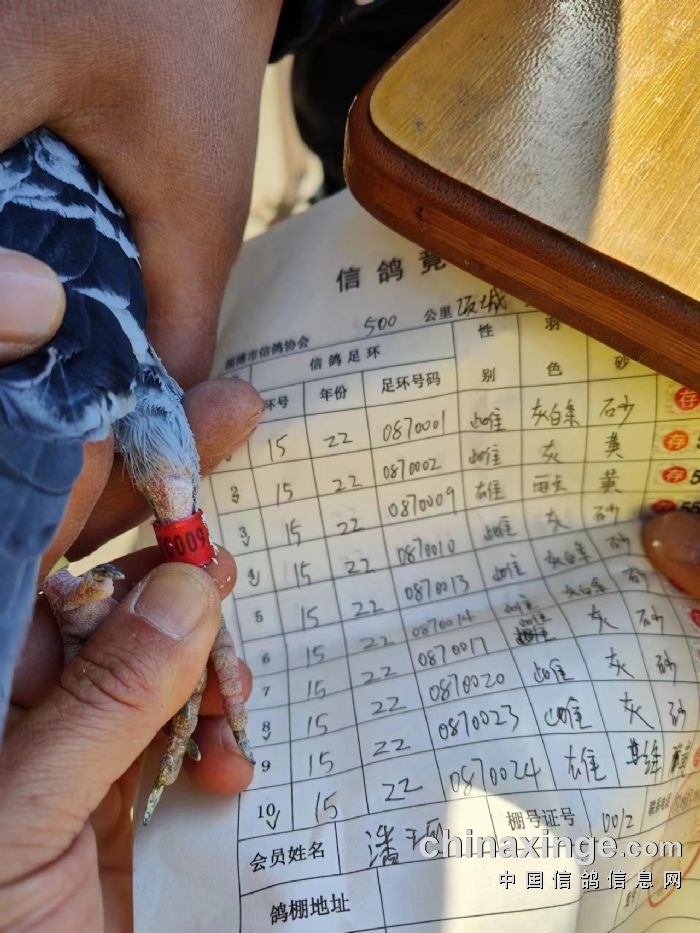 信鸽竞
500 公里
淄博市信鸽协会
信鸽足环 性别 羽色 砂
环号 年份 足环号码
15 22 0870001 雌 灰白条 砂
2 15 22 0870002 雌 灰 黄
3 15 22 0870009 雄 雨点 黄
4 15 22 0870010 雌 灰 砂
5 15 22 0870013 雌 灰白条 砂
6 15 22 0870014 雌 灰白条 砂
7 15 22 0870017 灰 砂
8 15 22 0870020 雌 灰 砂
9 15 22 0870023 雌 灰 砂
10 15 22 0870024 雄
会员姓名 潘 棚号证号 10012
鸽棚地址
联系电话
存
存
存
G009
chinaxinge.com
中国信鸽信息网